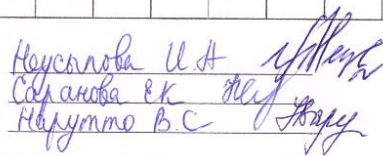 Неусыпова И.А
Саранова ЕК
Нарутто В.С